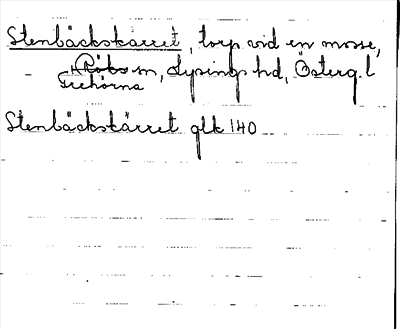 Stenbäckskärret, torp vid en mosse,
sn, Lysings hd, Österg. l
Trehörna
Stenbäckskärret glk 140